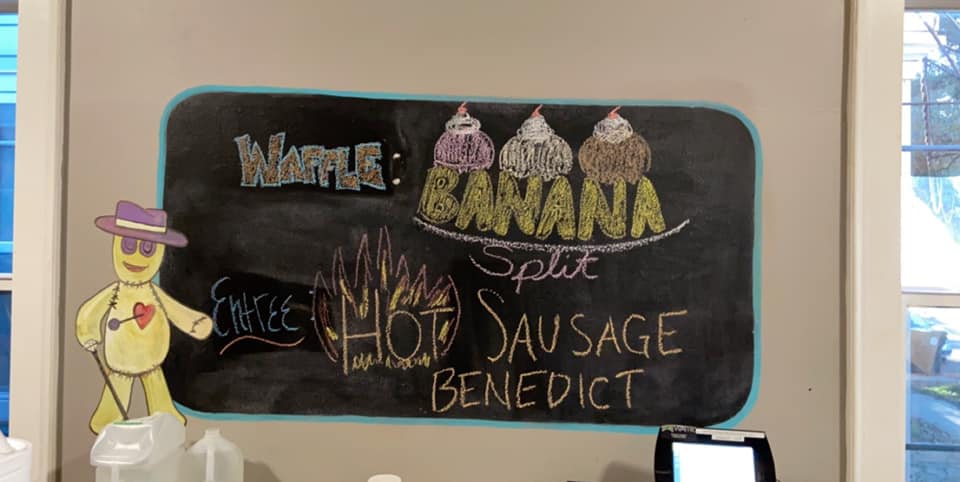 WAFFLE:
BANANA
Split
ENTREE
HOT SAUSAGE
BENEDICT